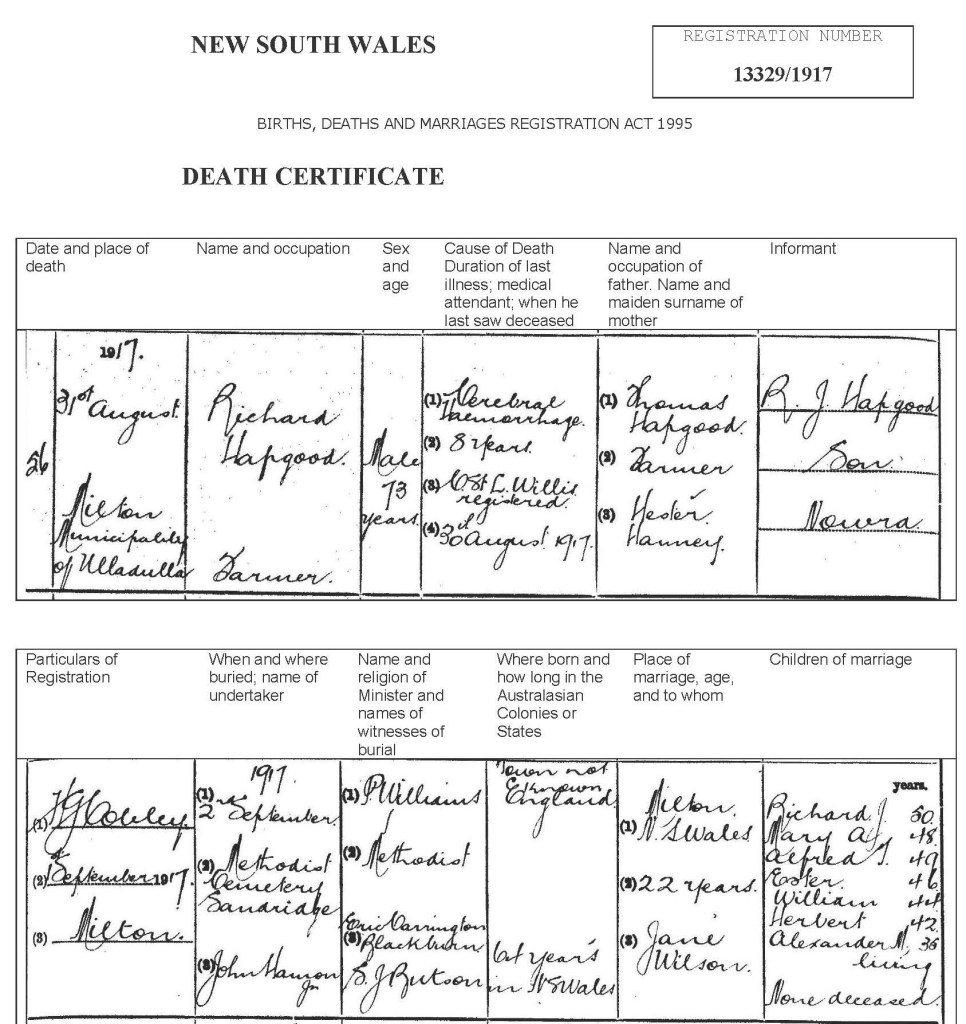 NEW SOUTH WALES
REGISTRATION NUMBER
13329/1917
BIRTHS, DEATHS AND MARRIAGES REGISTRATION ACT 1995
DEATH CERTIFICATE
Date and place of
death
Name and occupation
Sex
and
age
Cause of Death
Duration of last
illness; medical
attendant; when he
last saw deceased
Name and
occupation of
father. Name and
maiden surname of
mother
Informant
56
1917.
31st August.
Milton
Municipality
of Ulladulla
Richard
Hapgood.
Farmer.
Male
73
years.
(1) Cerebral
Haemorrhage.
(2) 8 years.
(3) L. Willis
registered.
(4) 30th August 1917.
(1) Thomas
Hapgood.
(2) Farmer
(3) Hester
Hanney.
R. J. Hapgood
Son.
Nowra.
Particulars of
Registration
When and where
buried; name of
undertaker
Name and
religion of
Minister and
names of
witnesses of
burial
Where born and
how long in the
Australasian
Colonies or
States
Place of
marriage, age,
and to whom
Children of marriage
(1)
(2) September 1917.
(3) Milton.
1917
(1) 2nd September.
(2) Methodist
Cemetery
Sandridge
(3) John Hannon
Jr
(1) P Williams
(2) Methodist
Eric Carrington
(3) Blackburn
S. J Rutson
Town not
Known
England.
64 years
in N S Wales
Milton.
(1) N. S Wales
(2) 22 years.
(3) Jane
Wilson.
years.
Richard J. 50
Mary A J 48
Alfred T. 49
Ester. 46
William 44
Herbert 42
Alexander M. 36
living
None deceased.